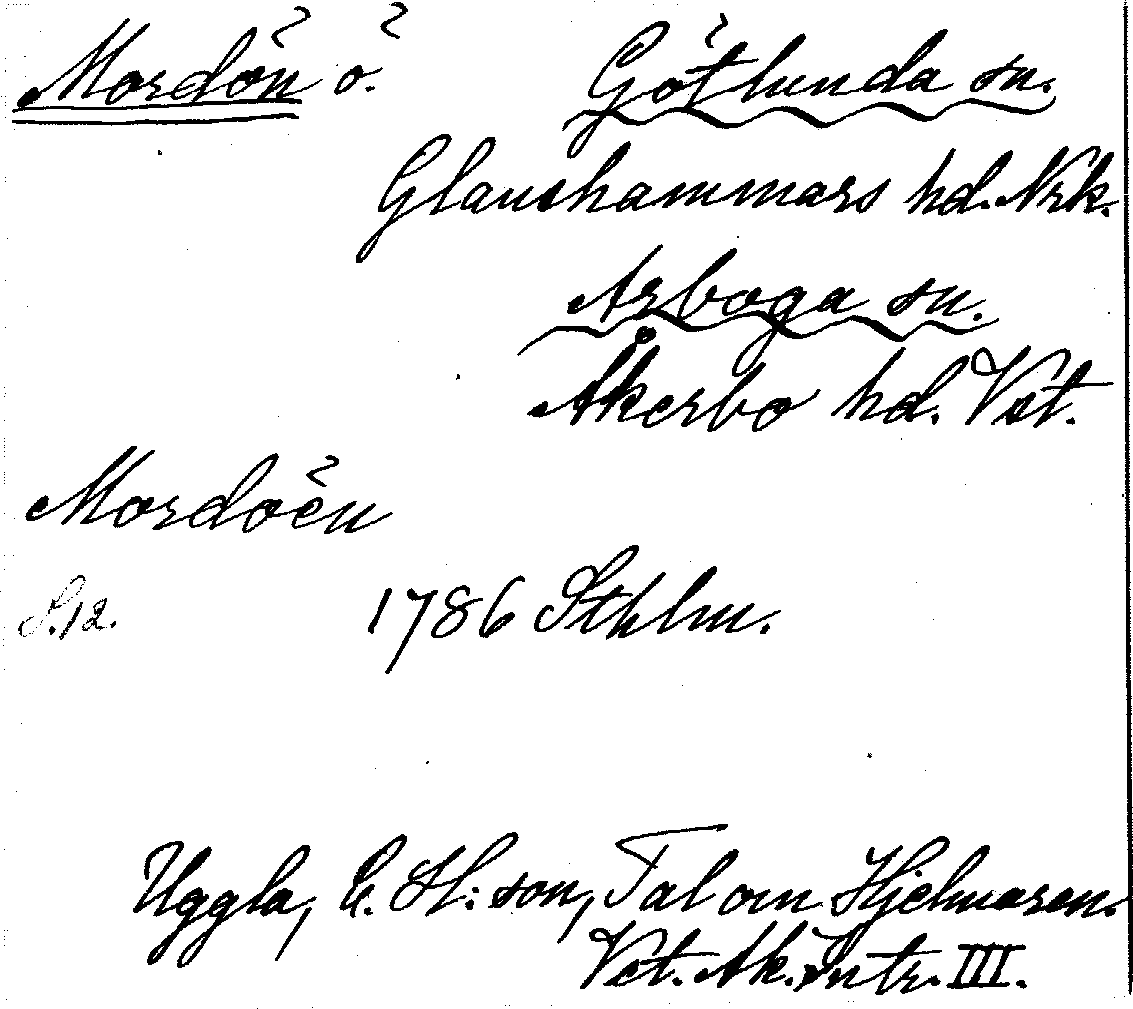 Mordön ö. Götlunda sn.
Glanshammars hd. Nrk.
Arboga sn.
Åkerbo hd. Vst.
Mordöen
S. 12. 1786 Sthlm.
Uggla, C. H:son, Tal om Hjelmaren.
Vet. Ak. Intr. III.